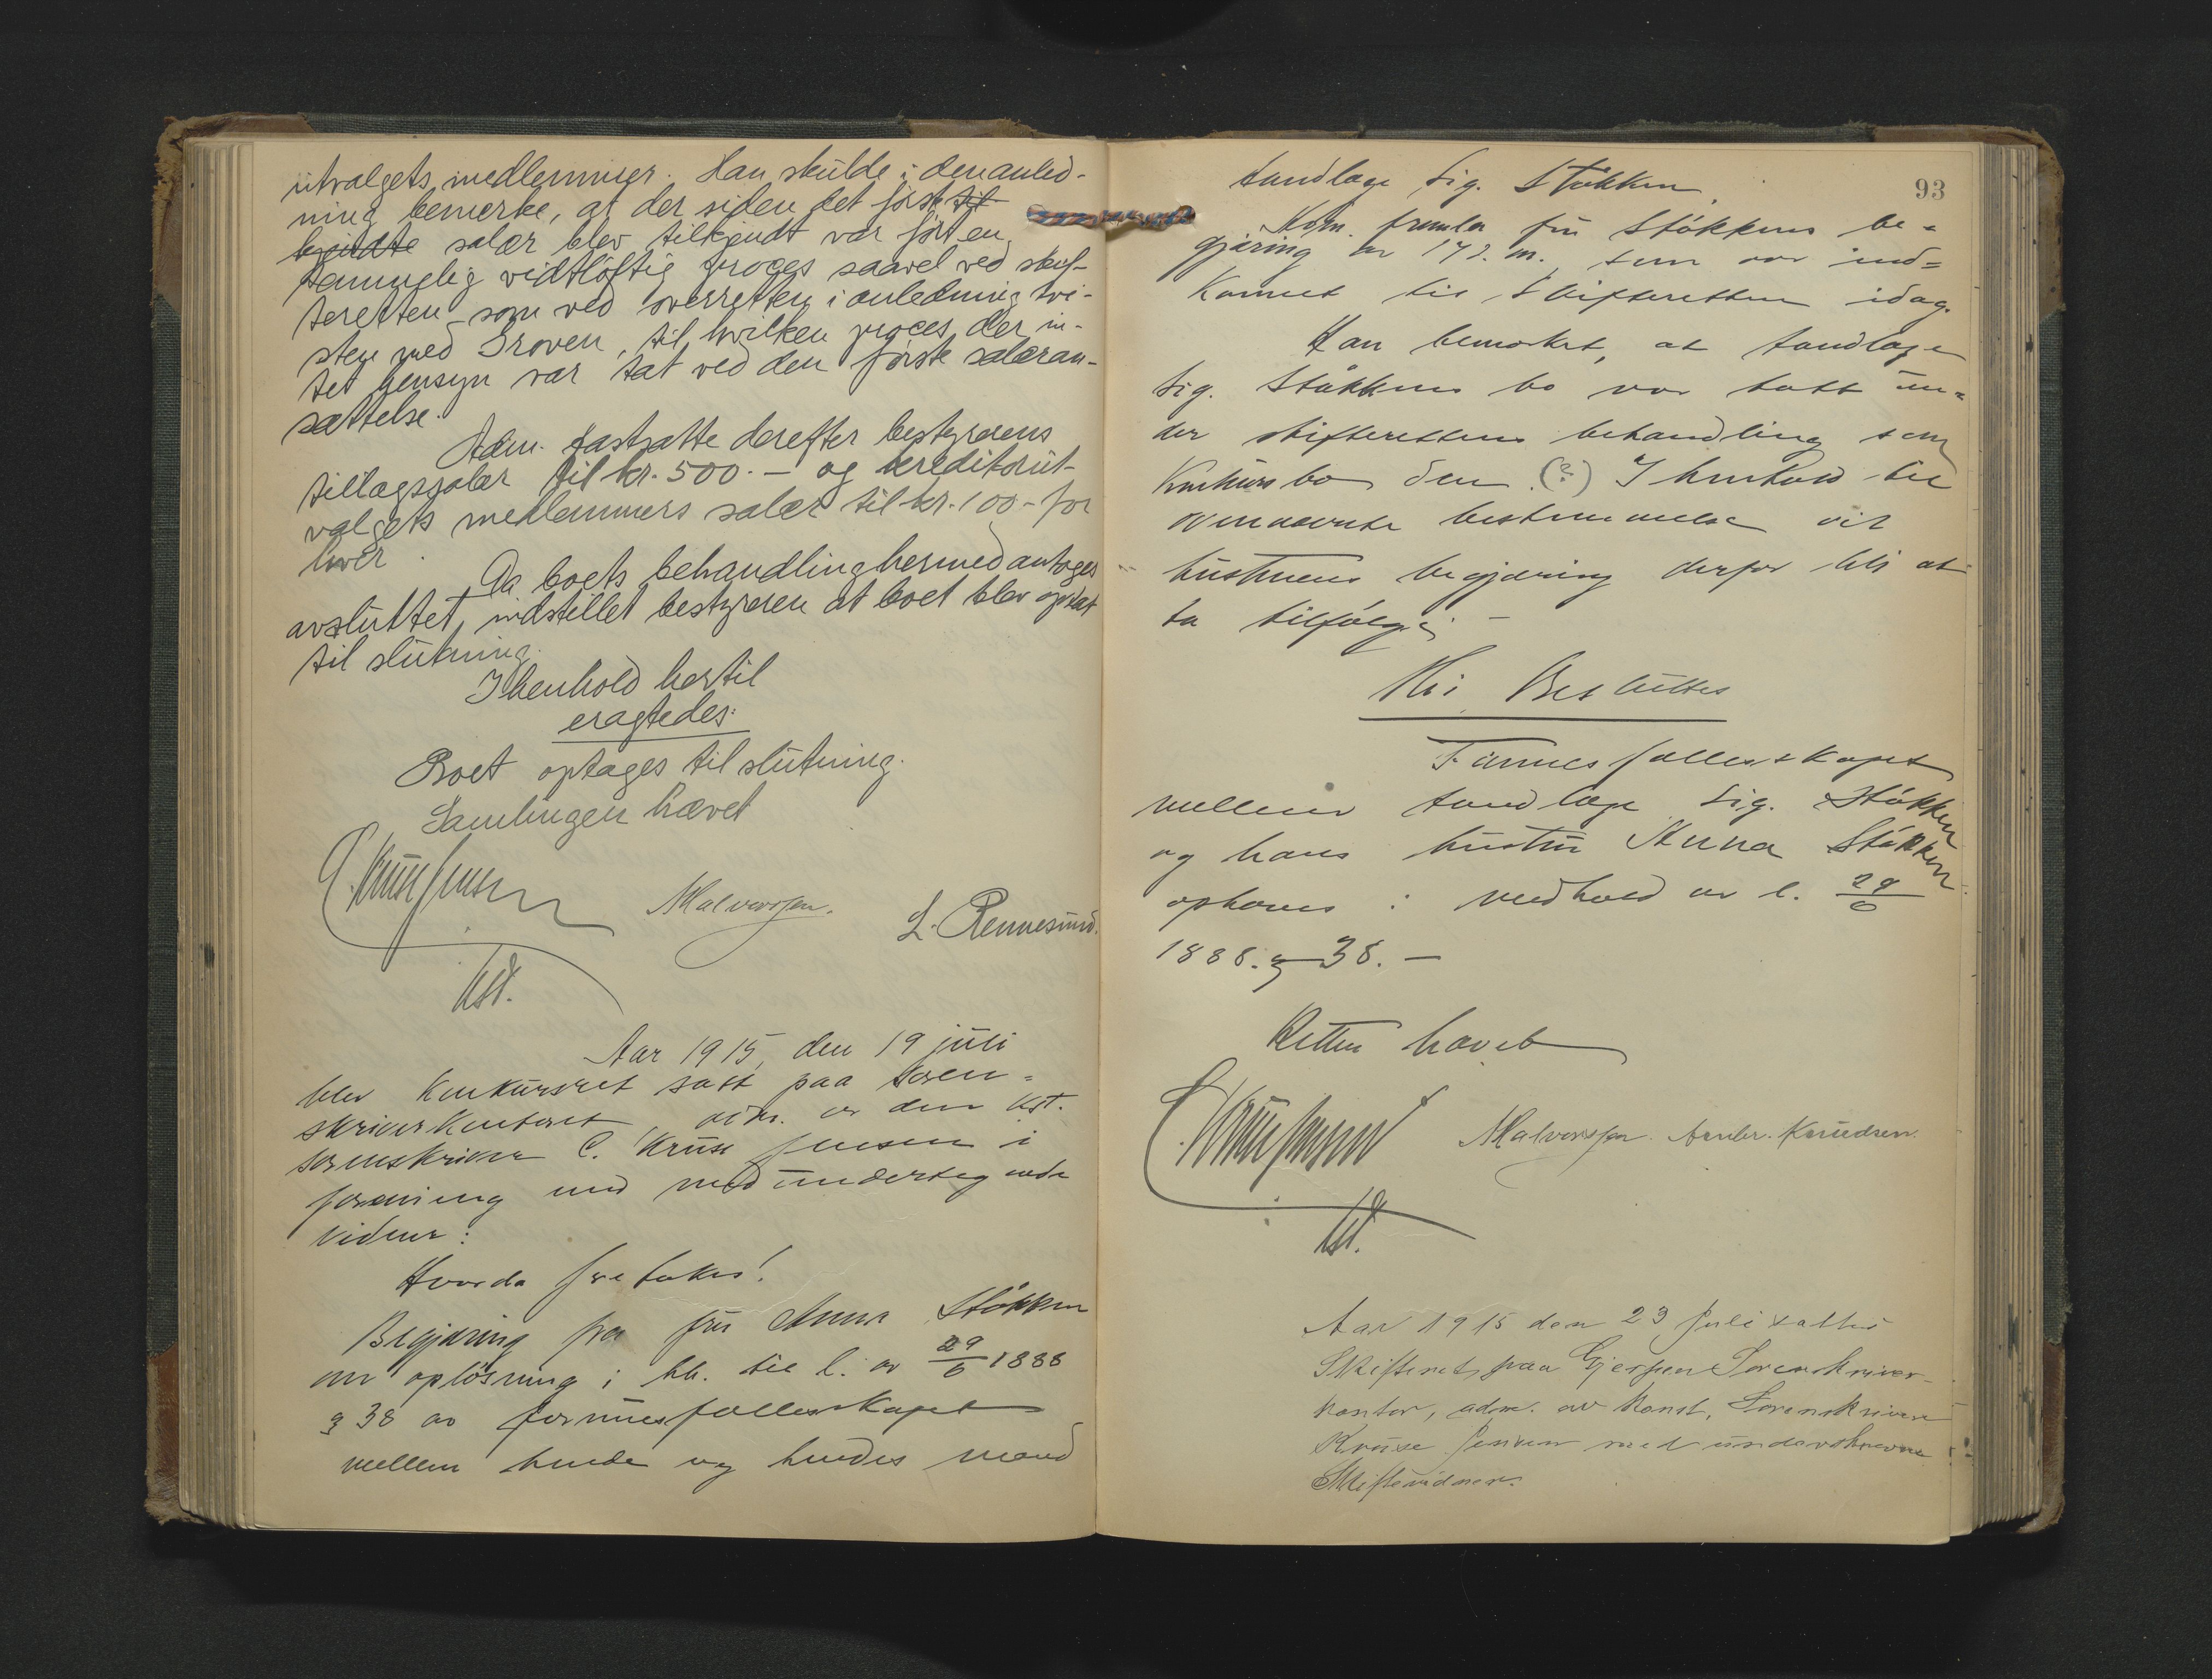 utvalgets medlemmer. Han skulde i den anled-
ning bemerke, at der siden det først til-
kjendte salær blev tilkjendt var ført en
temmelig vidtløftig proces saavel ved skif-
teretten som ved overretten i anledning tvi-
sten med Iroven, til hvilken proces der in-
tet hensyn var tat ved den første salæran-
sættelse.
Adm. fastsatte derefter bestyrerens
tillægssalær til kr. 500.- og kreditorut-
valgets medlemmers salær til kr. 100.- for
hver.
Da boets behandling hermed antages
avsluttet, indstillet bestyreren at boet blev optat
til slutning.
I henhold hertil
eragtedes:
Boet optages til slutning.
Samlingen hævet
C. Kruse Jensen
Kst.
N Halvorsen.
L. Rennesund.
Aar 1915, den 19 juli
blev konkursret satt paa soren=
skriverkontoret, adm. av den kst.
sorenskriver C. Kruse Jensen i
forening med medundertegnede
vidner:
Hvorda foretokes!
Begjæring fra fru Anna Støkken
om opløsning i hh. til l. av 29/6 1888
§ 38 av formuesfællesskapet
mellem hende og hendes mand
93
tandlæge Sig. Støkken.
Adm. fremla fru Støkkens be=
gjæring av 17 d. m., som var ind=
kommet til Skifteretten idag.
Han bemerket, at tandlæge
Sig. Støkkens bo var tatt un=
der skifterettens behandling som
konkursbo den (?) I henhold til
ovennævnte bestemmelse vil
hustruens begjæring derfor bli at
ta tilfølge; -
Thi Besluttes
Formuesfællesskapet
mellem tandlæge Sig. Støkken
og hans hustru Anna Støkken
ophæves i medhold av l. 29/6
1888. § 38. -
Retten hævet
C. Kruse Jensen
Kst.
N Halvorsen. Arnbr. Knudsen.
Aar 1915 den 23 Juli sattes
Skifteret paa Gjerpen Sorenskriver-
kontor, adm. av konst. Sorenskriver
Kruse Jensen med underskrevne
Skiftevidner.